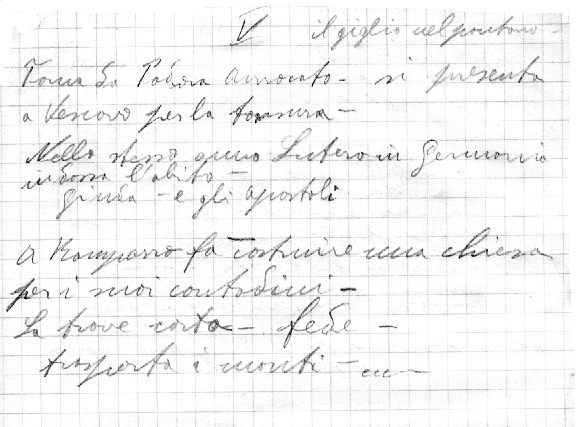 V il giglio nel pantano -
Torna da Padova avvocato - si presenta
a Vescovo per la tonsura -
Nello stesso anno Lutero in Germania
indossa l'abito -
Giuda - e gli apostoli
A Rampazzo fa costruire una chiesa
per i suoi contadini -
La trave corta - fede -
trasporta i monti -